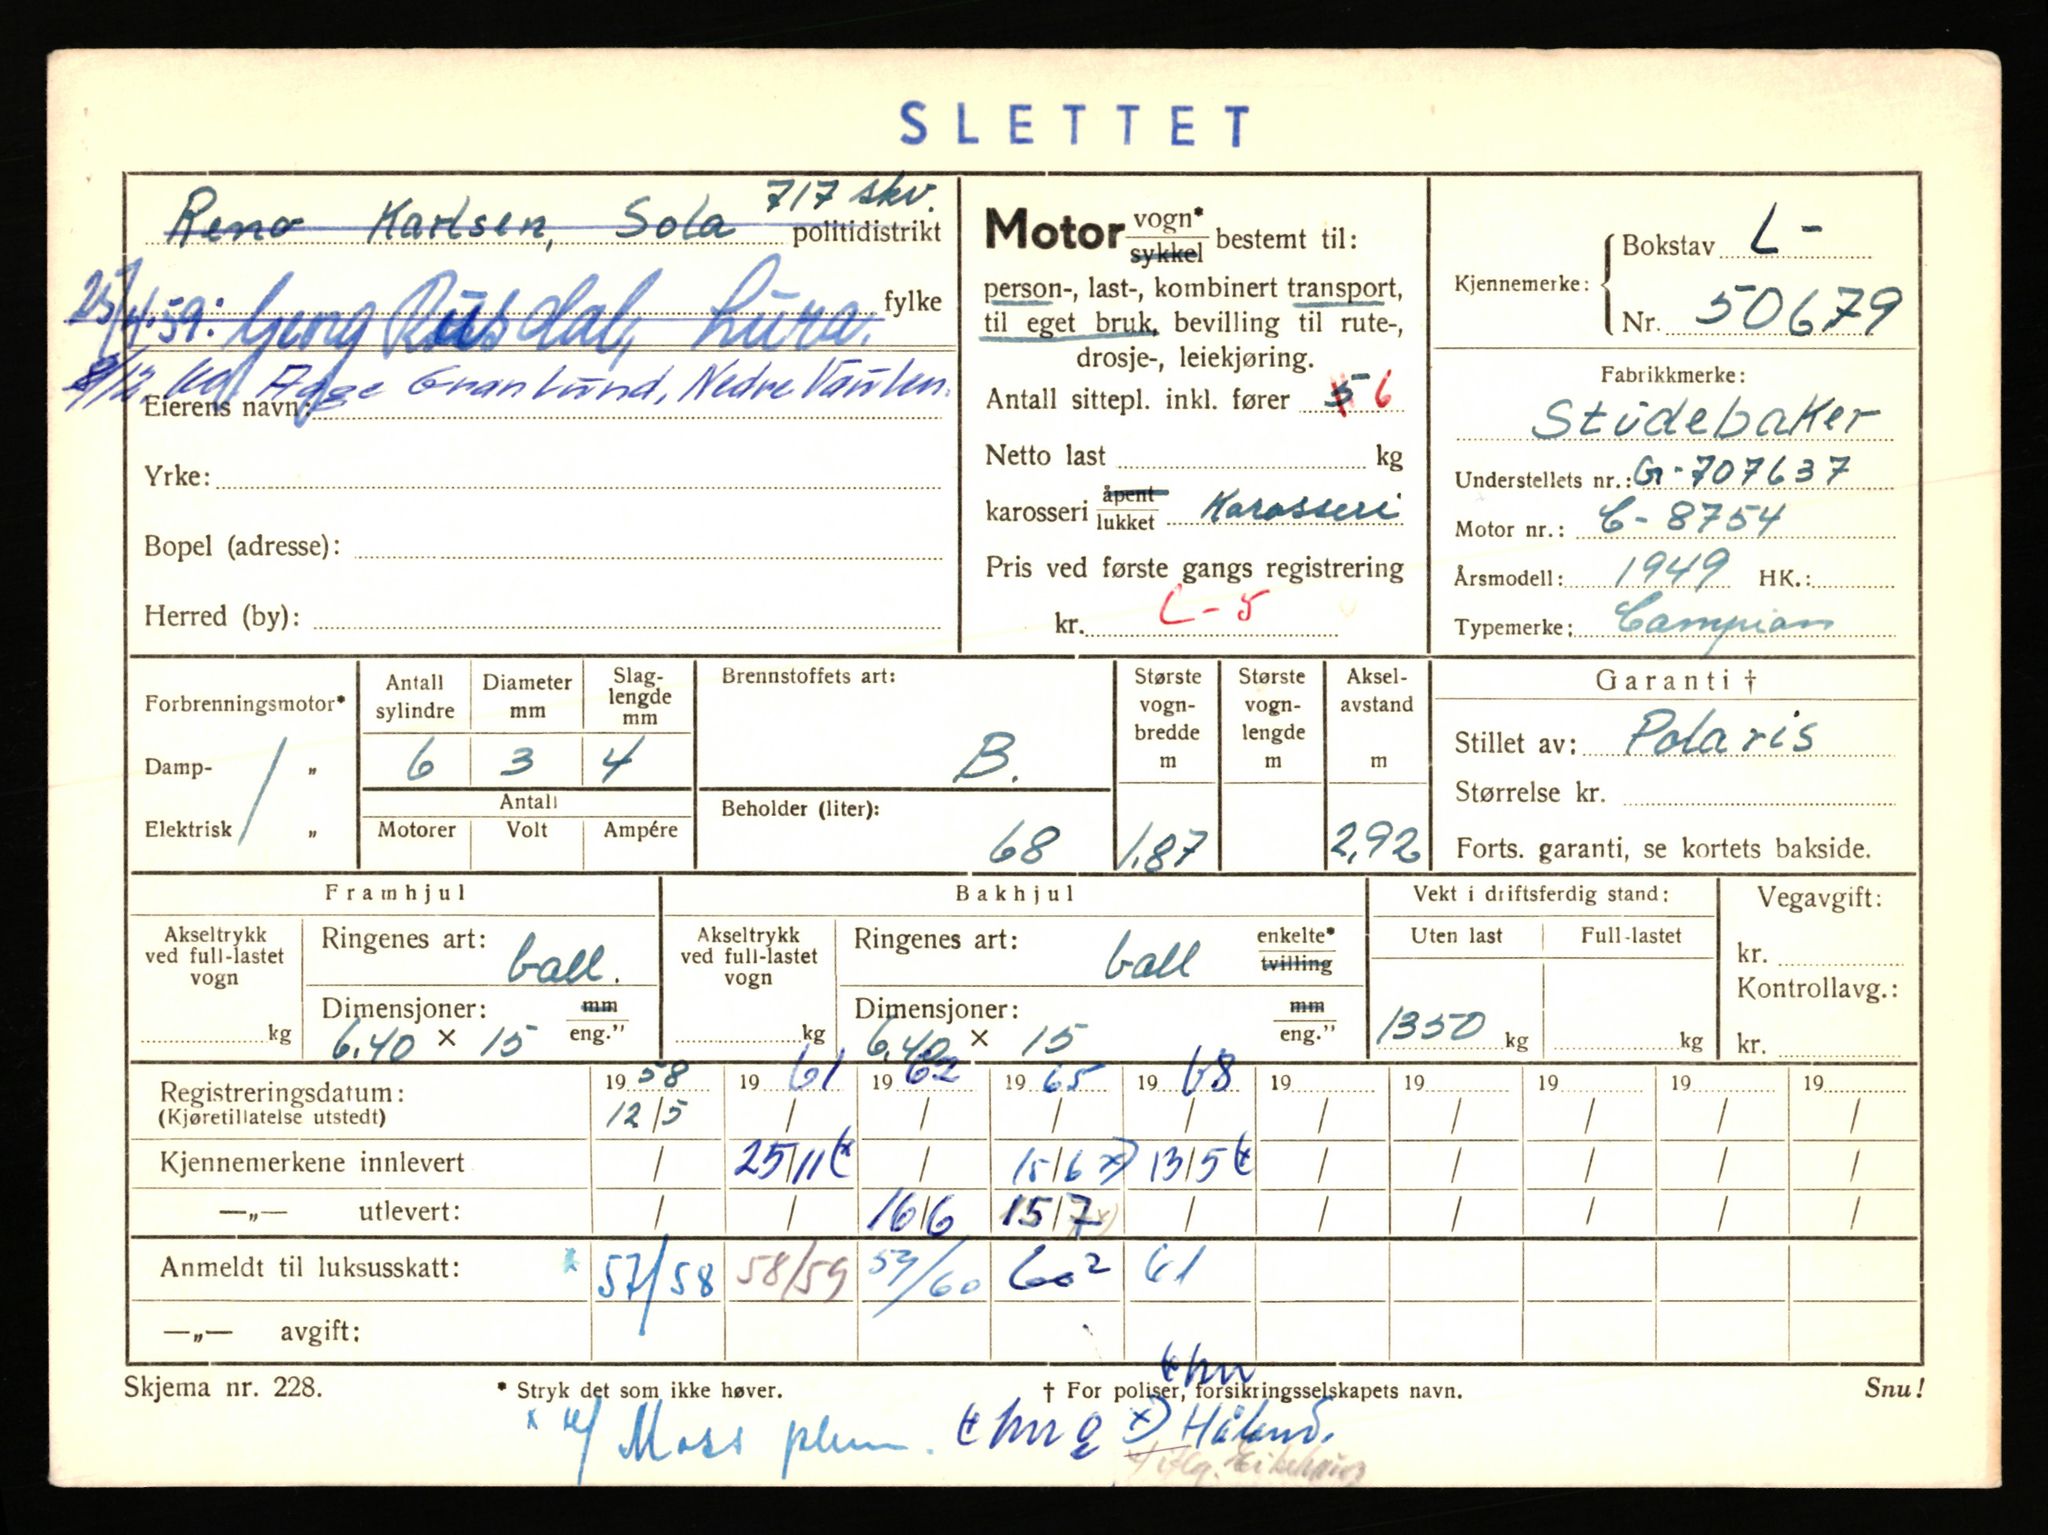 SLETTET
717 skv.
Reno Karlsen, Sola politidistrikt
25/4.59: Georg Rusdal, Lura. fylke
Aage Granlund, Nedre Vaulen.
Eierens navn:
Yrke:
Bopel (adresse):
Herred (by):
Motor vogn* sykkel bestemt til:
person-, last-, kombinert transport,
til eget bruk, bevilling til rute-,
drosje-, leiekjøring.
Antall sittepl. inkl. fører 5 6
Netto last kg
karosseri åpent lukket Karosseri
Pris ved første gangs registrering
kr. L-5
Kjennemerke: Bokstav L-
Nr. 50679
Fabrikkmerke:
Studebaker
Understellets nr.: G-707637
Motor nr.: C-8754
Årsmodell: 1949 HK.:
Typemerke: Campian
Forbrenningsmotor*
Damp- „
Elektrisk „
Antall sylindre Diameter mm Slag-lengde mm
6 3 4
Antall
Motorer Volt Ampére
Brennstoffets art:
B.
Beholder (liter):
68
Største vogn-bredde m
1,87
Største vogn-lengde m
Aksel-avstand m
2,92
Garanti †
Stillet av: Polaris
Størrelse kr.
Forts. garanti, se kortets bakside.
Framhjul
Akseltrykk ved full-lastet vogn kg
Ringenes art: ball.
Dimensjoner: mm eng."
6,40 × 15
Bakhjul
Akseltrykk ved full-lastet vogn kg
Ringenes art: ball enkelte* tvilling
Dimensjoner: mm eng."
6,40 × 15
Vekt i driftsferdig stand:
Uten last Full-lastet
1350 kg kg
Vegavgift:
kr.
Kontrollavg.:
kr.
Registreringsdatum: 19 58 19 61 19 62 19 65 19 68 19 19 19 19 19
(Kjøretillatelse utstedt) 12/5 / / / / / / / / /
Kjennemerkene innlevert / 25/11 / 15/6 x) 13/5 / / / / /
—„— utlevert: / / 16/6 15/7 / / / / / /
Anmeldt til luksusskatt: x 57/58 58/59 59/60 60² 61
—„— avgift:
Skjema nr. 228.
* Stryk det som ikke høver.
† For poliser, forsikringsselskapets navn.
Snu!
Moss
x) Håland.